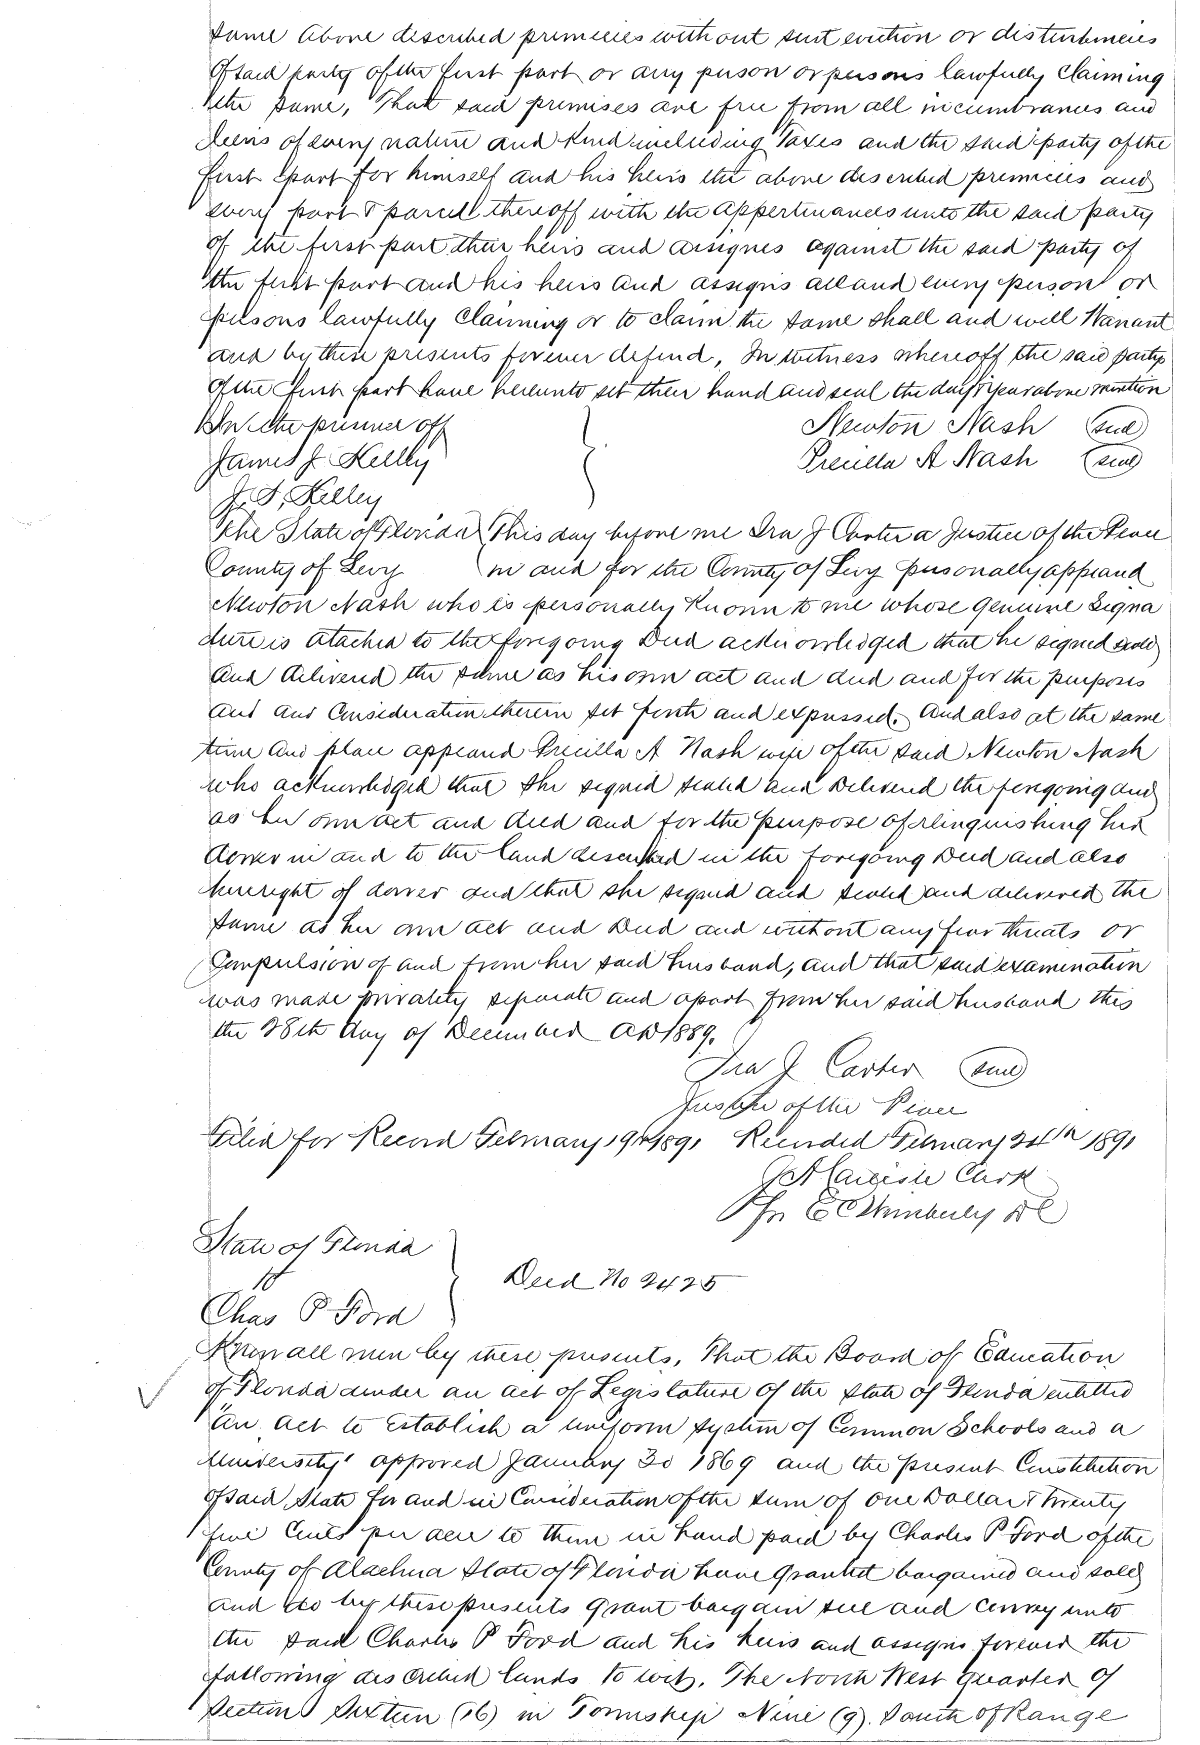 same above described premicies without suit eviction or disturbincies
of said party of the first part or any person or persons lawfully claiming
the same, That said premises are free from all incumbrances and
leins of every nature and kind including Taxes and the said party of the
first part for himself and his heirs the above described premicies and
every part & parcel thereoff with the appertinances unto the said party
of the first part their heirs and assignes against the said party of
the first part and his heirs and assigns all and every person or
persons lawfully claiming or to claim the same shall and will Warrant
and by these presents forever defend, In witness whereoff the said partys
of the first part have hereunto set their hand and seal the day & year above mention
In the presence off
Newton Nash (seal)
James J. Kelley
Precilla A Nash (seal)
J. S. Kelley
The State of Florida This day before me Ira J Carter a Justice of the Peace
County of Levy in and for the County of Levy personally appeard
Newton Nash who is personally known to me whose genuine signa
ture is atached to the foregoing Deed acknowledged that he signed seald
and delivered the same as his own act and deed and for the purposes
and and consideration therein set forth and expressed. And also at the same
time and place appeard Precilla A Nash wife of the said Newton Nash
who acknowledged that she signed sealed and Delivered the foregoing and
as her own act and deed and for the purpose of relinquishing her
dower in and to the land described in the foregoing Deed and also
her right of dower and that she signed and sealed and delivered the
same as her own act and Deed and without any fear threats or
Compulsion of and from her said husband, and that said examination
was made privately separate and apart from her said husband this
the 28th day of December AD 1889.
Ira J Carter (seal)
Justice of the Peace
Filed for Record February 19th 1891 Recorded February 24th 1891
Carlisle Clerk
Pr E C Wimberly D C
State of Florida
to
Deed No 2425
Chas P Ford
Know all men by these presents, That the Board of Education
of Florida under an act of Legislature of the State of Florida entitled
"An act to Establish a uniform system of Common Schools and a
University" approved January 30 1869 and the present Constitution
of said State for and in Consideration of the sum of One Dollar & Twenty
five Cents per acre to them in hand paid by Charles P Ford of the
County of Alachua State of Florida have granted bargained and sold
and do by these presents grant bargain sell and convey unto
the said Charles P Ford and his heirs and assigns forever the
following described lands to wit, The North West quarter of
Section Sixteen (16) in Township Nine (9) South of Range